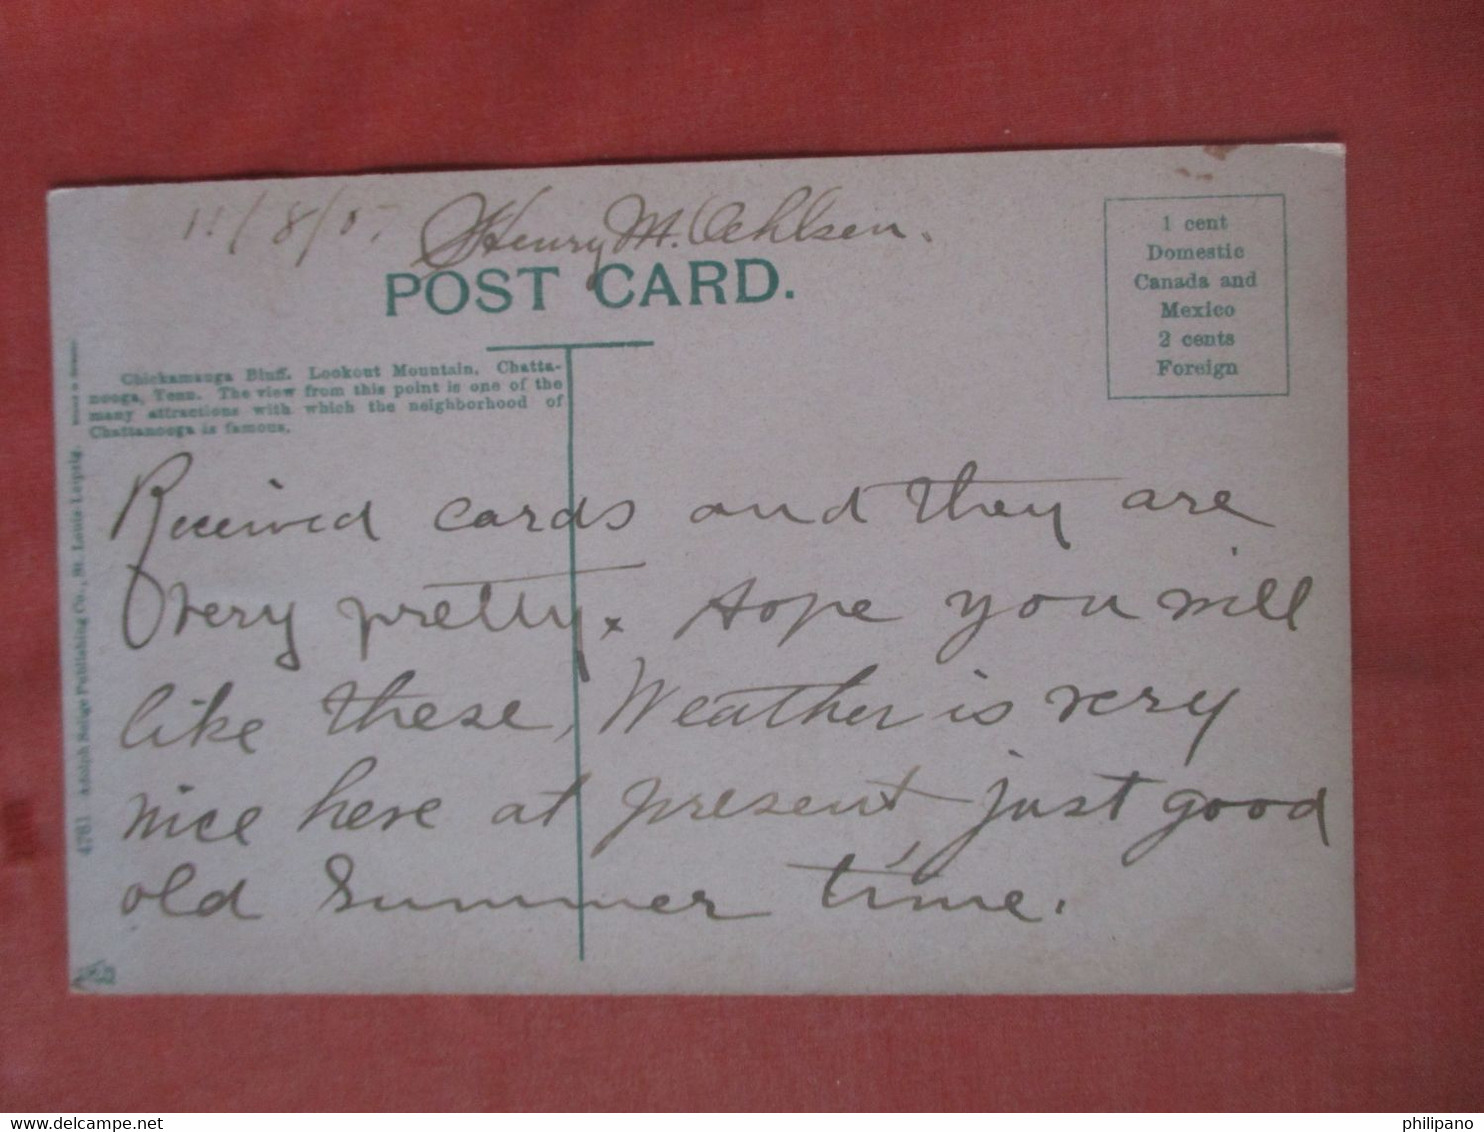 Henry M. Oehlsen.
POST CARD.
1 cent
Domestic
Canada and
Mexico
2 cents
Foreign
Chickamauga Bluff. Lookout Mountain. Chatta-
nooga, Tenn. The view from this point is one of the
many attractions with which the neighborhood of
Chattanooga is famous.
Received cards and they are
very pretty. Hope you will
like these, Weather is very
nice here at present, just good
old Summer time.
4761 Adolph Selige Publishing Co., St. Louis-Leipzig.
delcampe.net
philipano